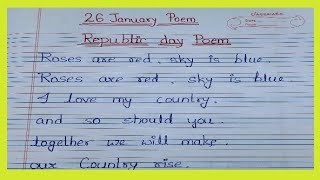 26 January Poem
Republic day Poem
Roses are red, sky is blue.
Roses are red, sky is blue.
I love my country.
and so should you.
together we will make.
our Country rise.